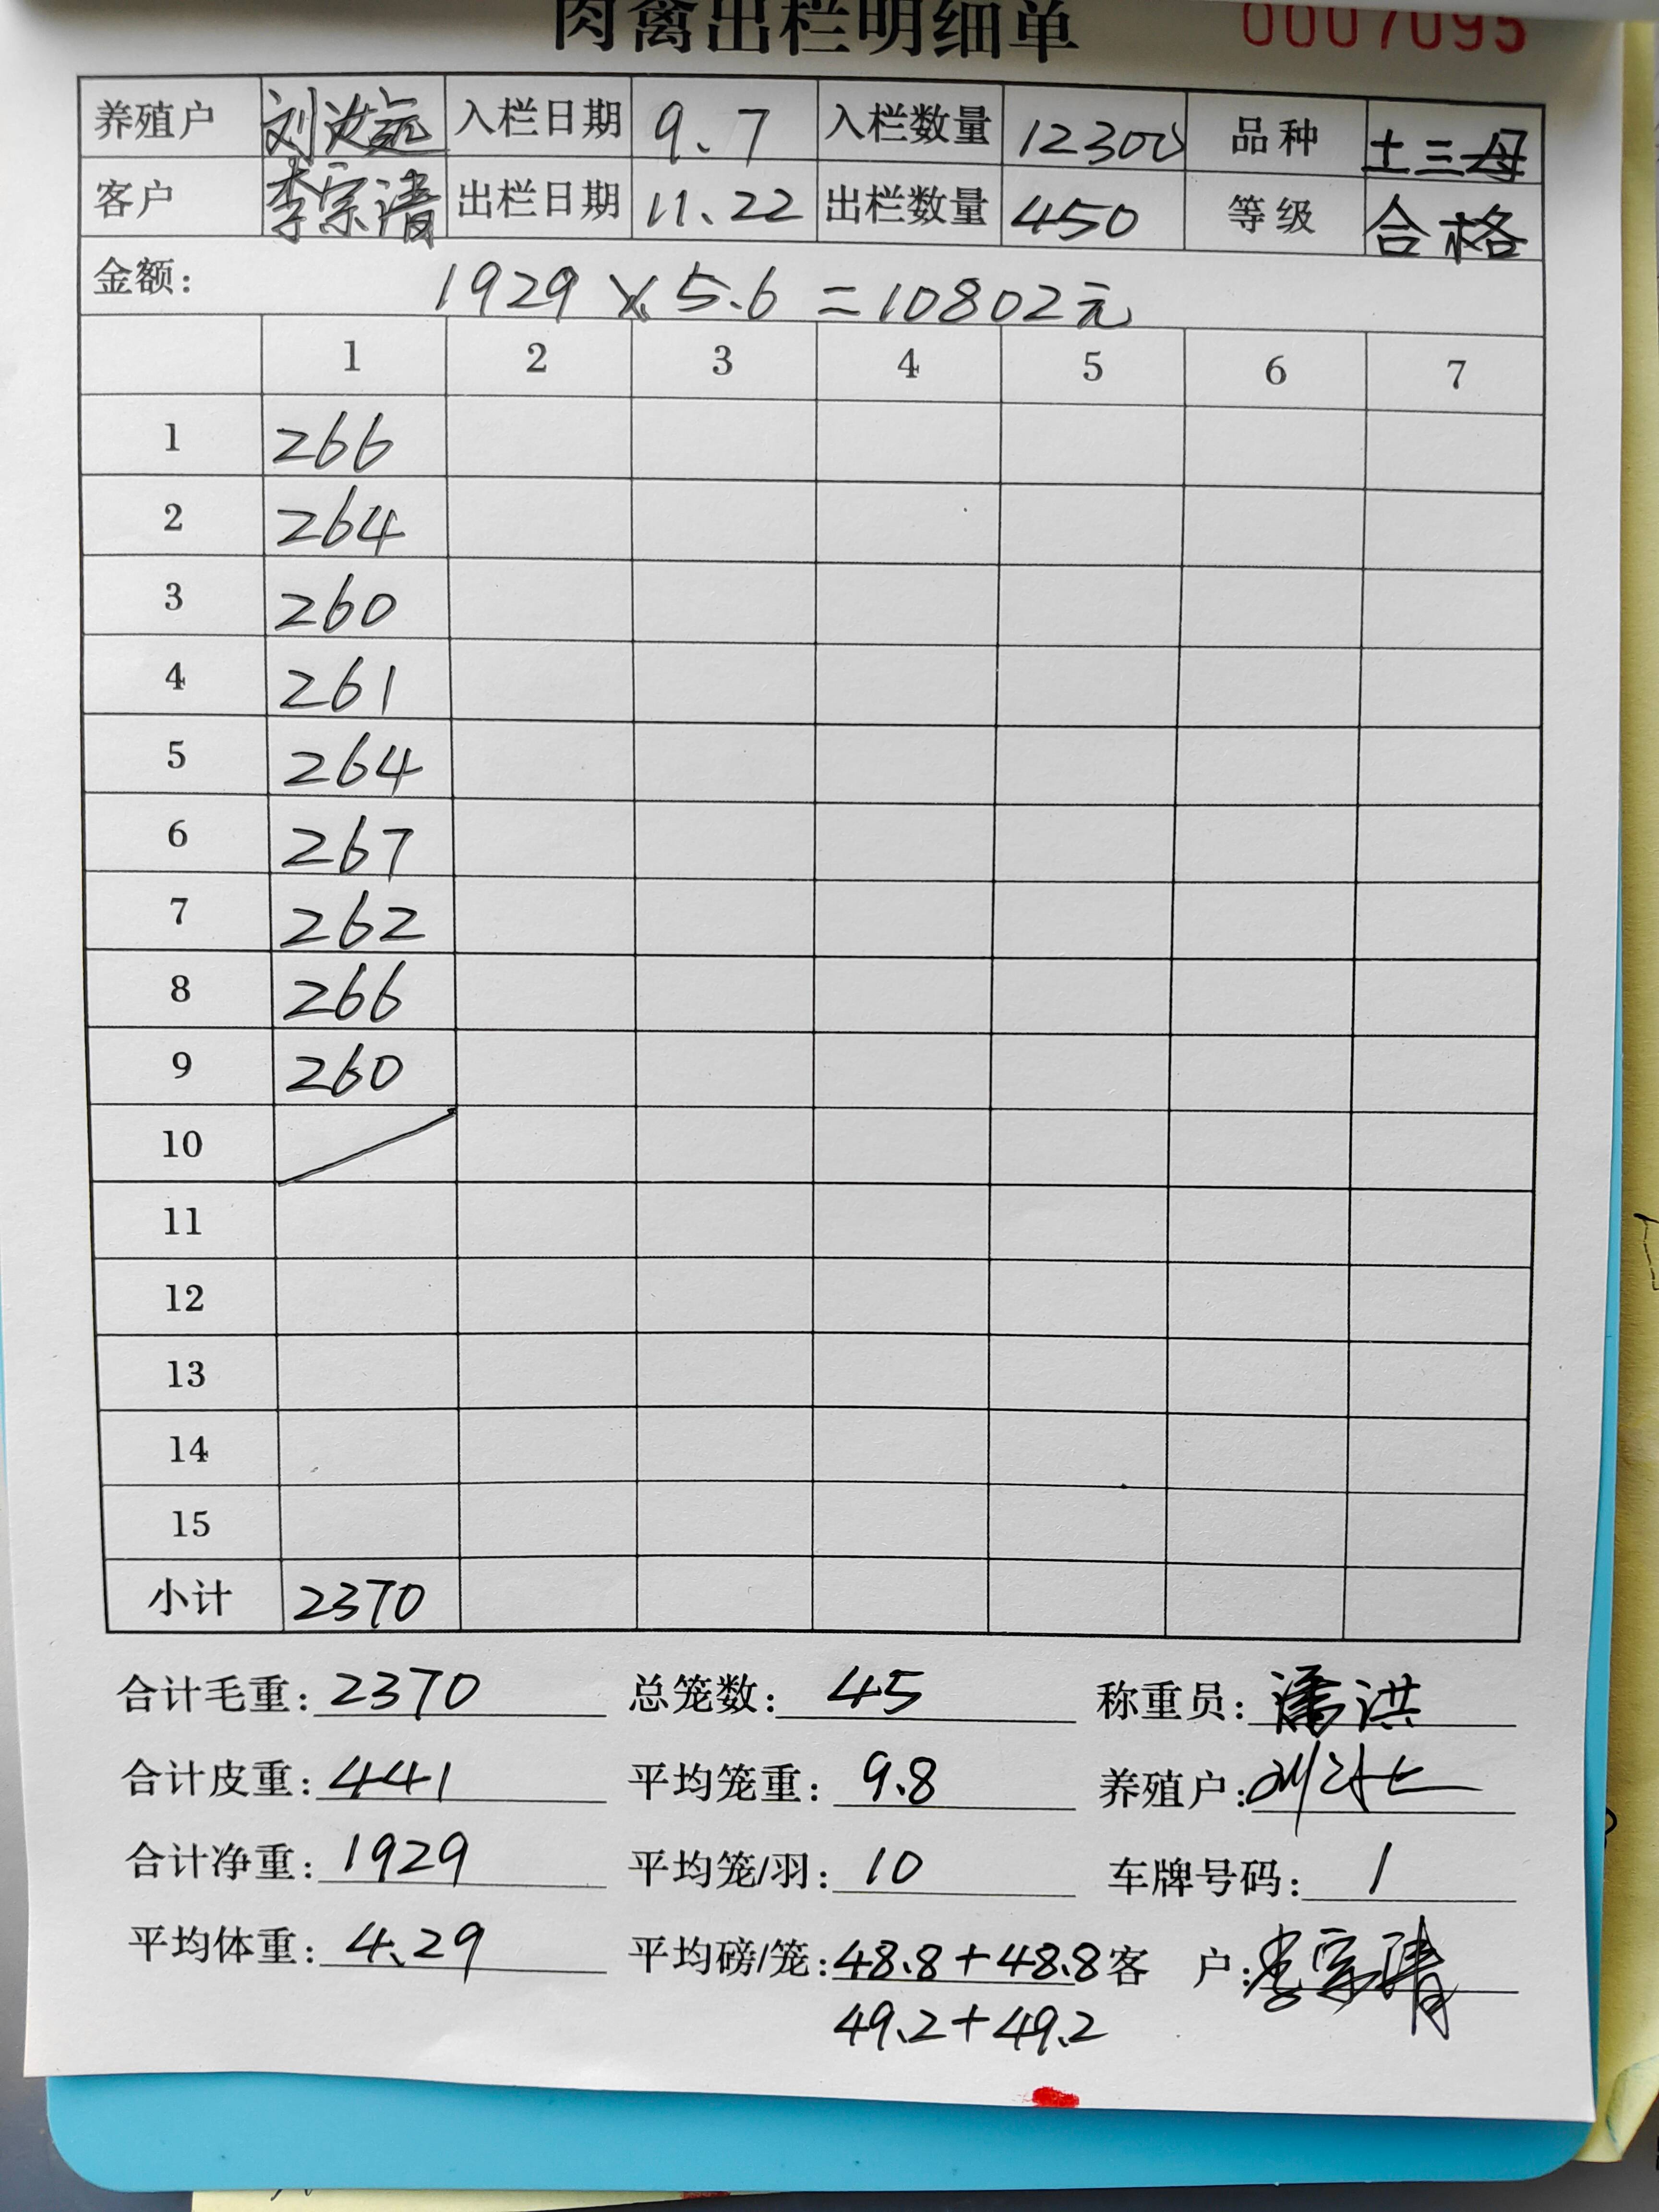 肉禽出栏明细单 0007095
养殖户 刘汝远 入栏日期 9.7 入栏数量 12300 品种 土三母
客户 李宗清 出栏日期 11.22 出栏数量 450 等级 合格
金额: 1929×5.6=10802元
1 2 3 4 5 6 7
1 266
2 264
3 260
4 261
5 264
6 267
7 262
8 266
9 260
10
11
12
13
14
15
小计 2370
合计毛重: 2370 总笼数: 45 称重员: 潘洪
合计皮重: 441 平均笼重: 9.8 养殖户:
合计净重: 1929 平均笼/羽: 10 车牌号码: 1
平均体重: 4.29 平均磅/笼: 48.8+48.8 客 户: 李宗清
49.2+49.2